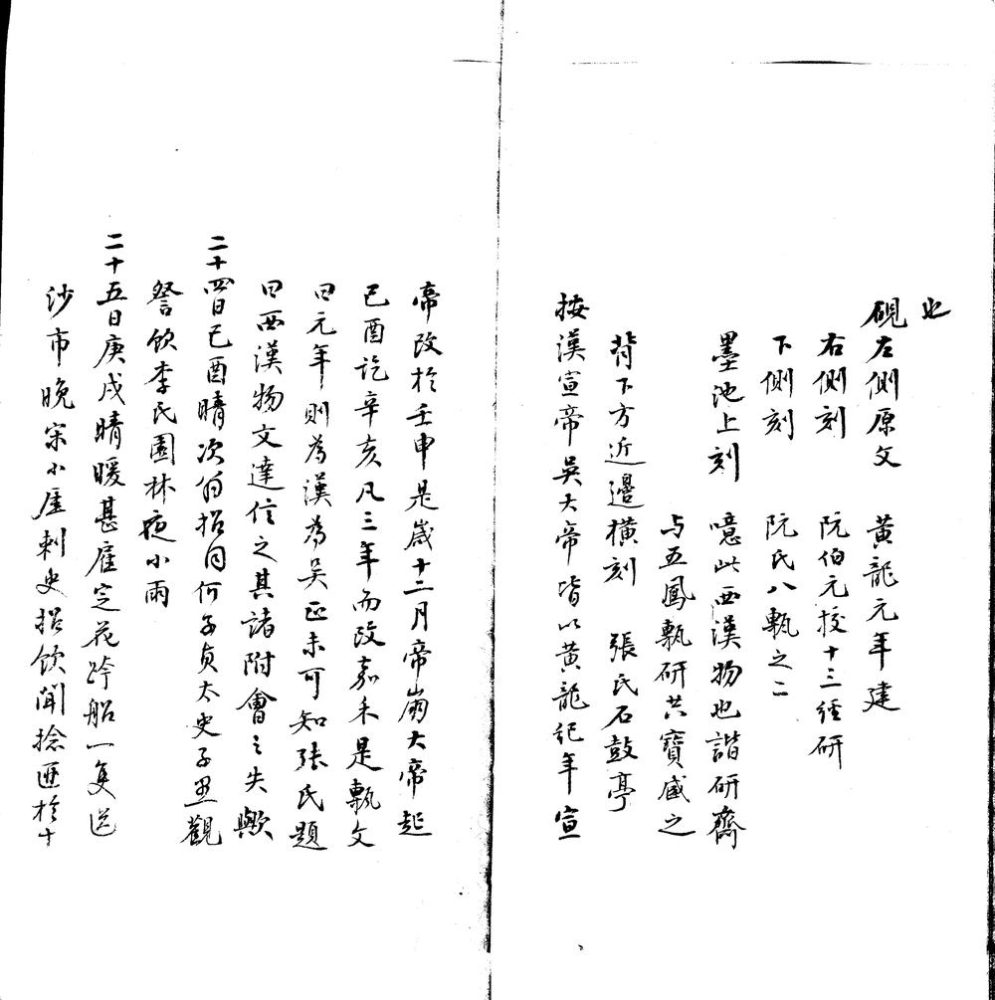 也
硯左側原文　黃龍元年建
右側刻　阮伯元挍十三經研
下側刻　阮氏八甎之二
墨池上刻　噫此西漢物也諧研齋
与五鳳甎研共寶感之
背下方近邊橫刻　張氏石鼓亭
按漢宣帝吳大帝皆以黃龍紀年宣
帝改於壬申是歲十二月帝崩大帝起
己酉訖辛亥凡三年而改嘉禾是甎文
曰元年則為漢為吳正未可知張氏題
曰西漢物文達信之其諸附會之失歟
二十四日己酉晴次招同何子貞太史子愚觀
詧飲李氏園林夜小雨
二十五日庚戌晴暖甚雇定花艙船一隻送
沙市晚宋小厓刺史招飲聞捻匪於十